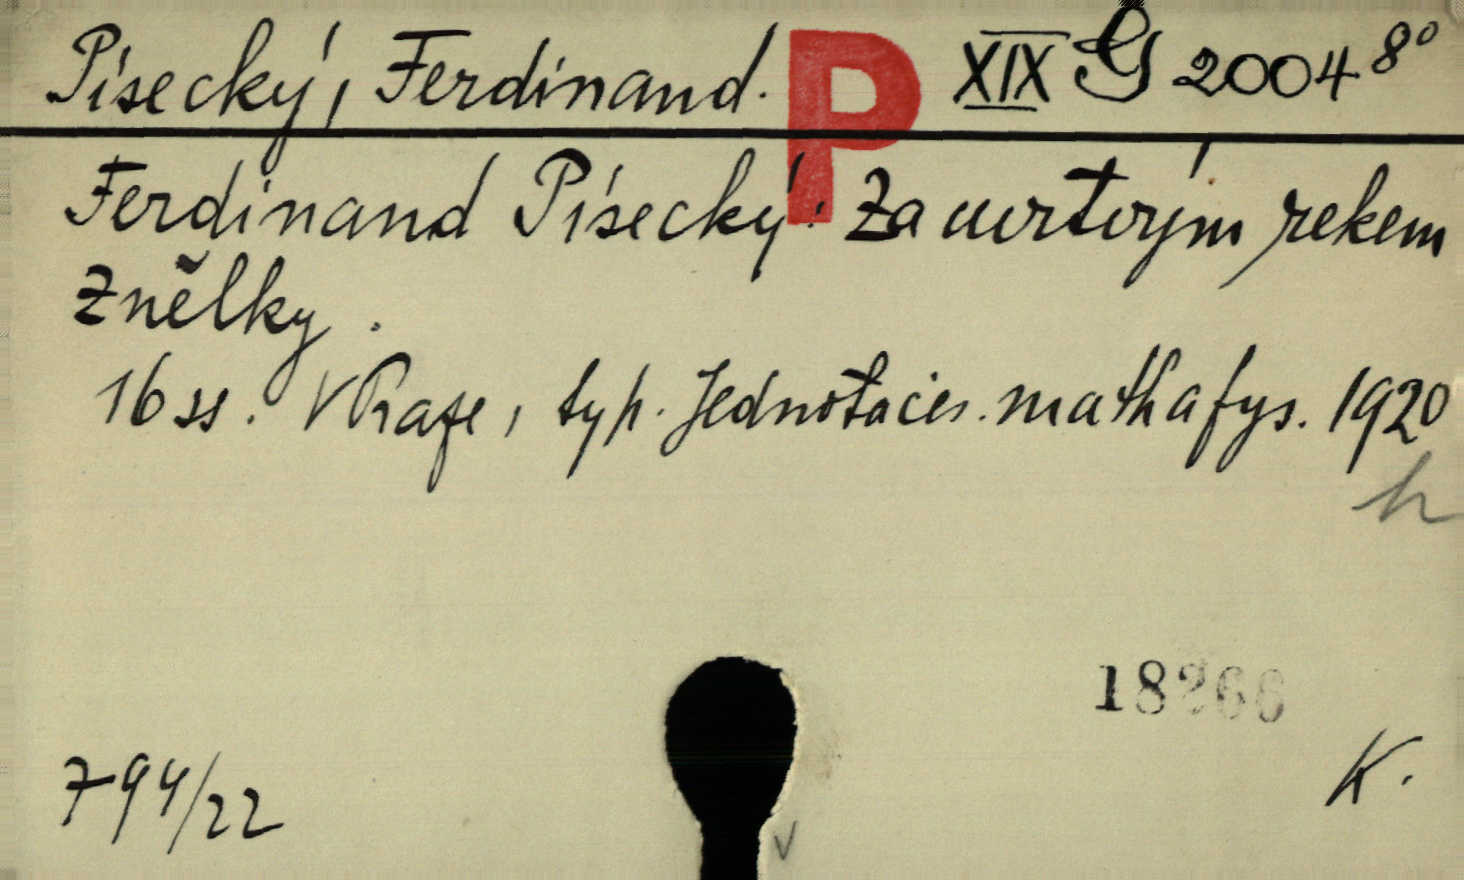 Písecký, Ferdinand. P XIX G 2004 8°
Ferdinand Písecký: Za mrtvým rekem
Znělky.
16 ss. V Praze, typ. Jednota čes. math a fys. 1920
h
18266
K.
794/22
V